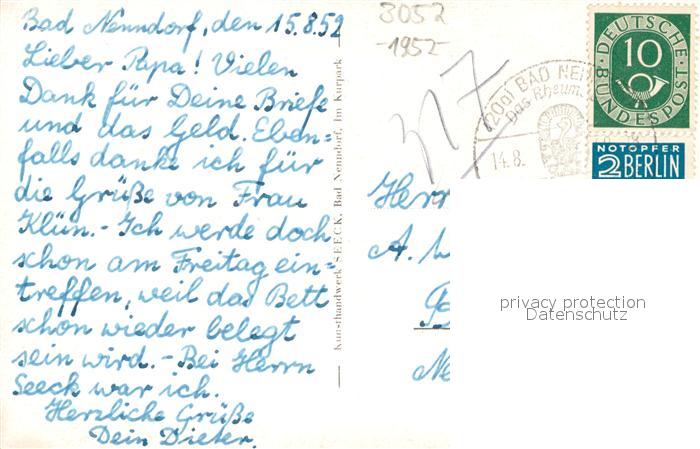 Bad Nenndorf, den 15.8.52
Lieber Papa! Vielen
Dank für Deine Briefe
und das Geld. Eben=
falls danke ich für
die Grüße von Frau
Klün.- Ich werde doch
schon am Freitag ein=
treffen, weil das Bett
schon wieder belegt
sein wird.- Bei Herrn
Seeck war ich.
Herzliche Grüße
Dein Dieter.
Kunsthandwerk SEECK, Bad Nenndorf, Im Kurpark
3052
-1952-
317
(20a) BAD NEN
Das Rheum
14.8.
DEUTSCHE
BUNDESPOST
10
NOTOPFER
2 BERLIN
Herr
A.
privacy protection
Datenschutz